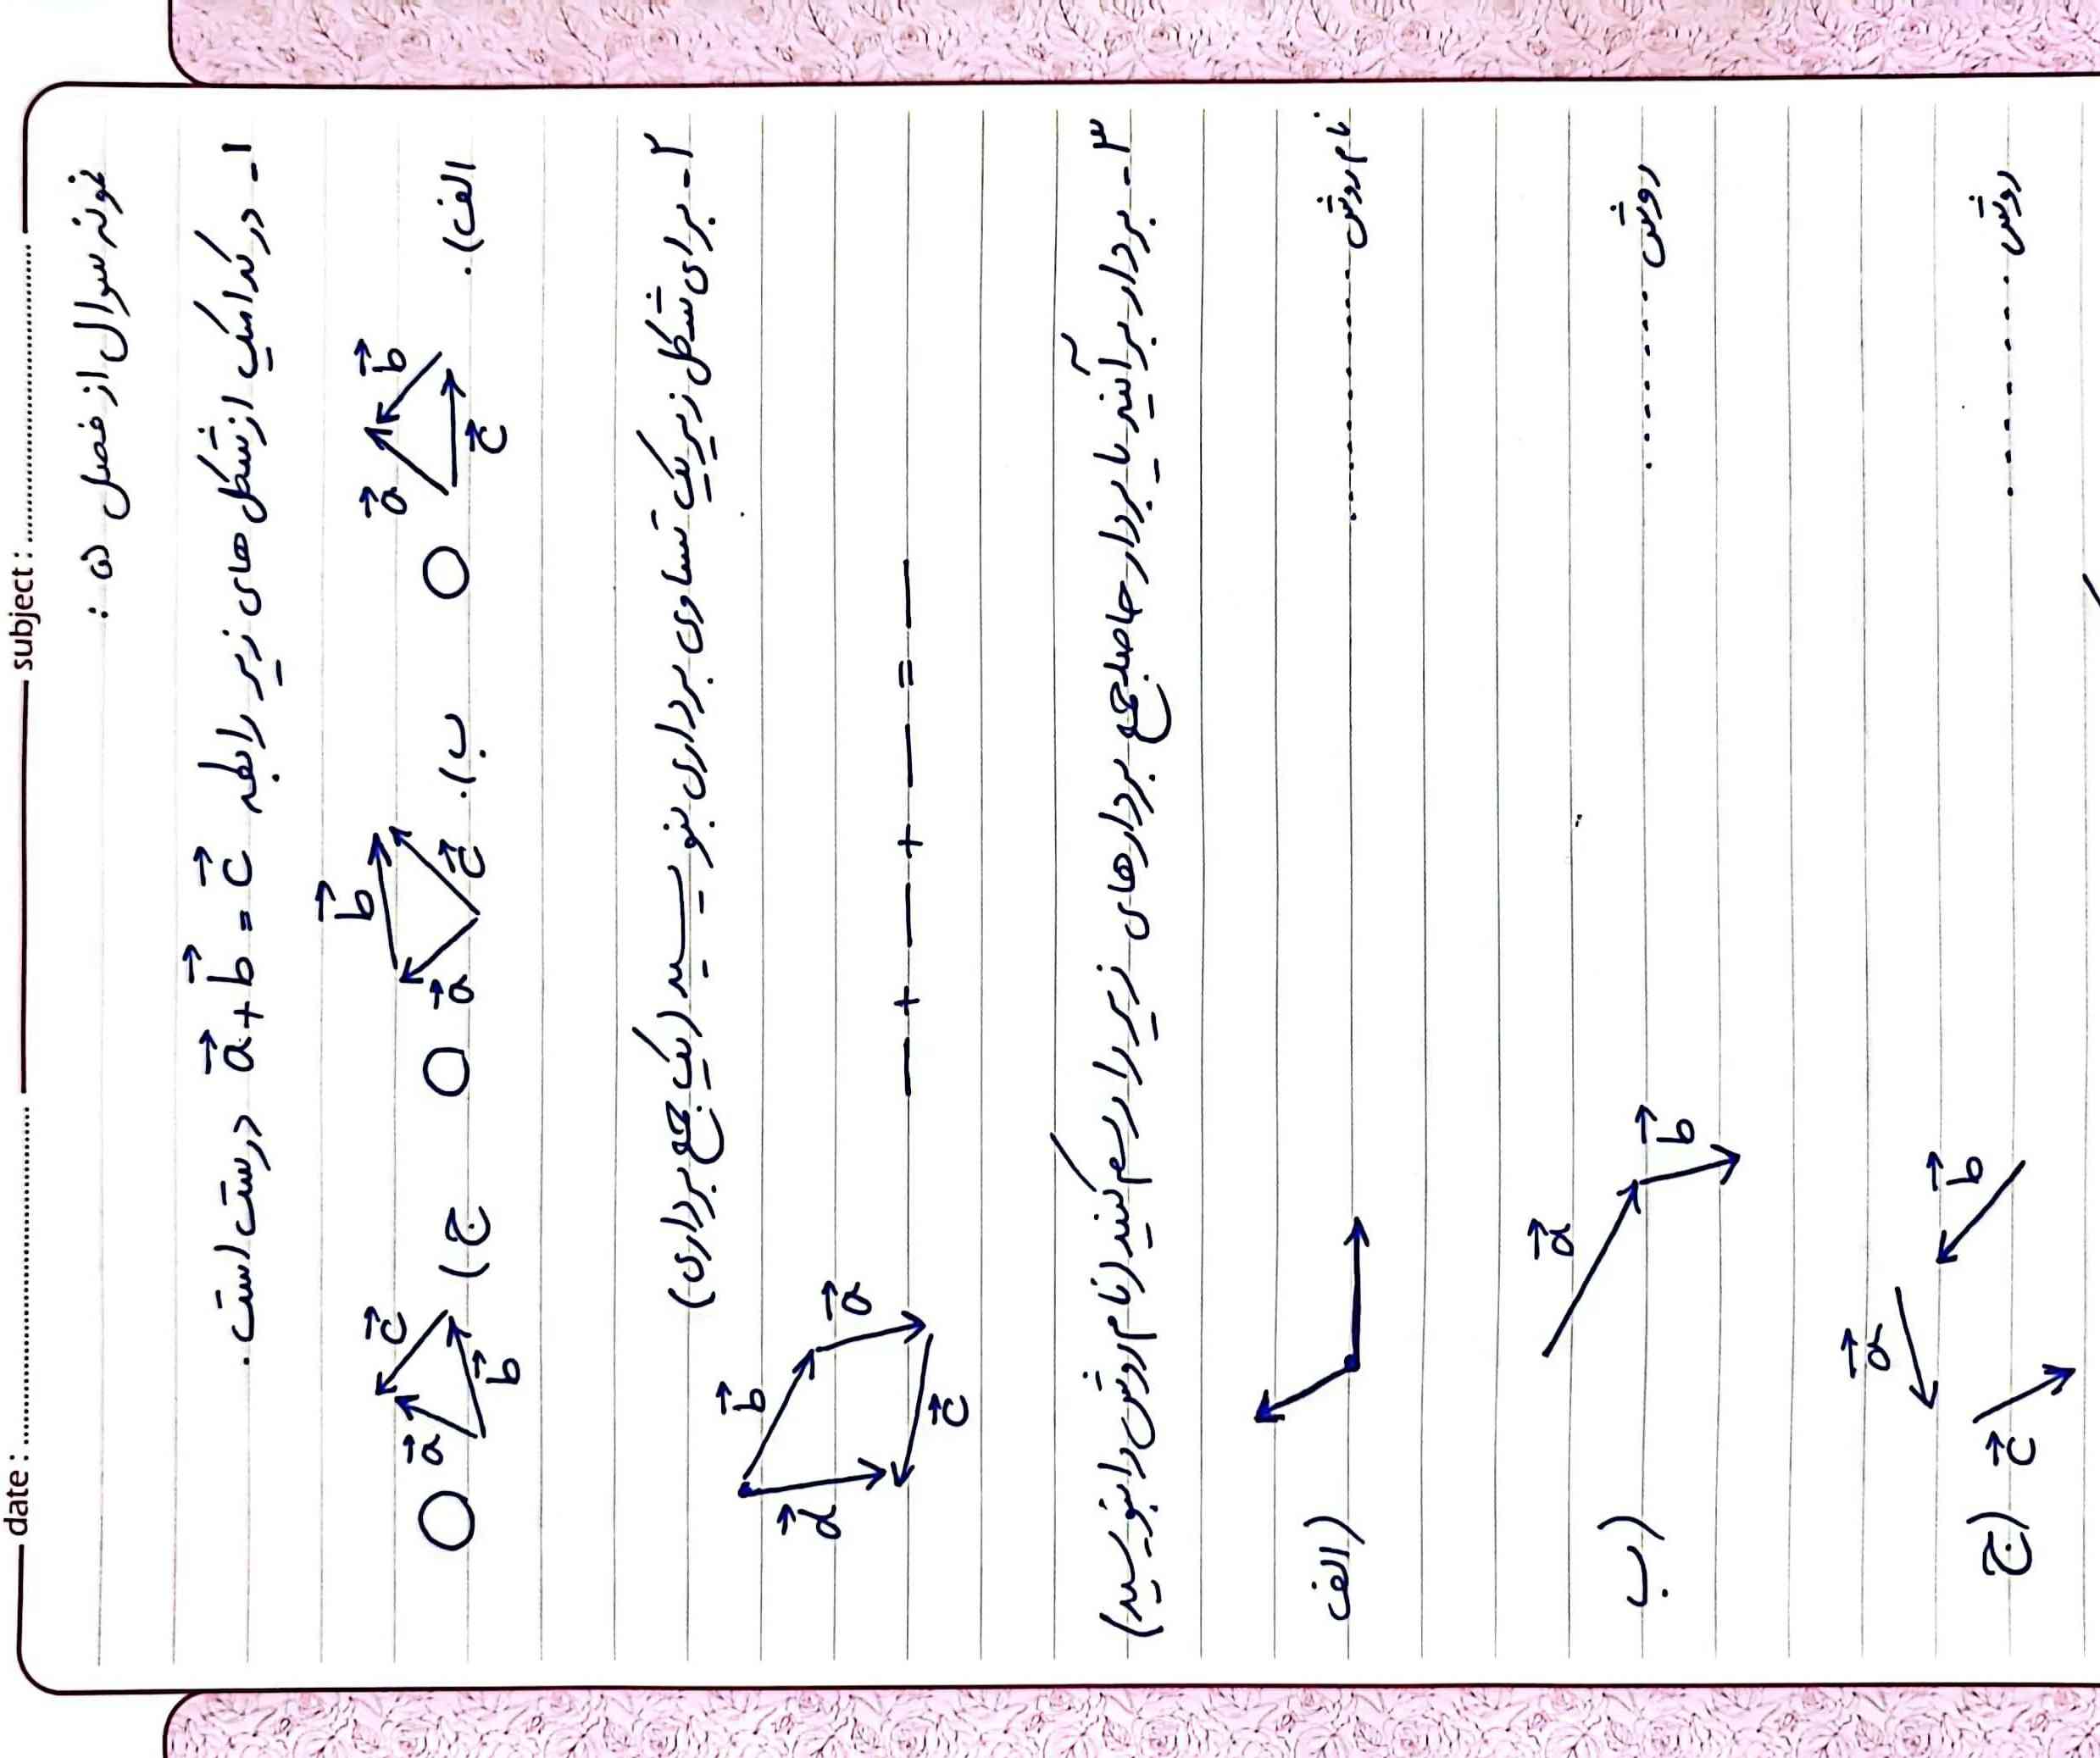 date: ........ subject: ........
نمونه سوال از فصل ۵ :
۱- در کدامیک از شکل های زیر رابطه a⃗ + b⃗ = c⃗ درست است.
الف). a⃗ b⃗ c⃗ ب). a⃗ b⃗ c⃗ ج) a⃗ b⃗ c⃗
۲- برای شکل زیر یک تساوی برداری بنویسید (یک جمع برداری)
b⃗ a⃗ d⃗ c⃗
— + — + — = —
۳- بردار برآیند یا بردار حاصلجمع بردارهای زیر را رسم کنید (نام روش را بنویسید)
الف) نام روش ........
ب) a⃗ b⃗ روش ........
ج) a⃗ b⃗ c⃗ روش ........